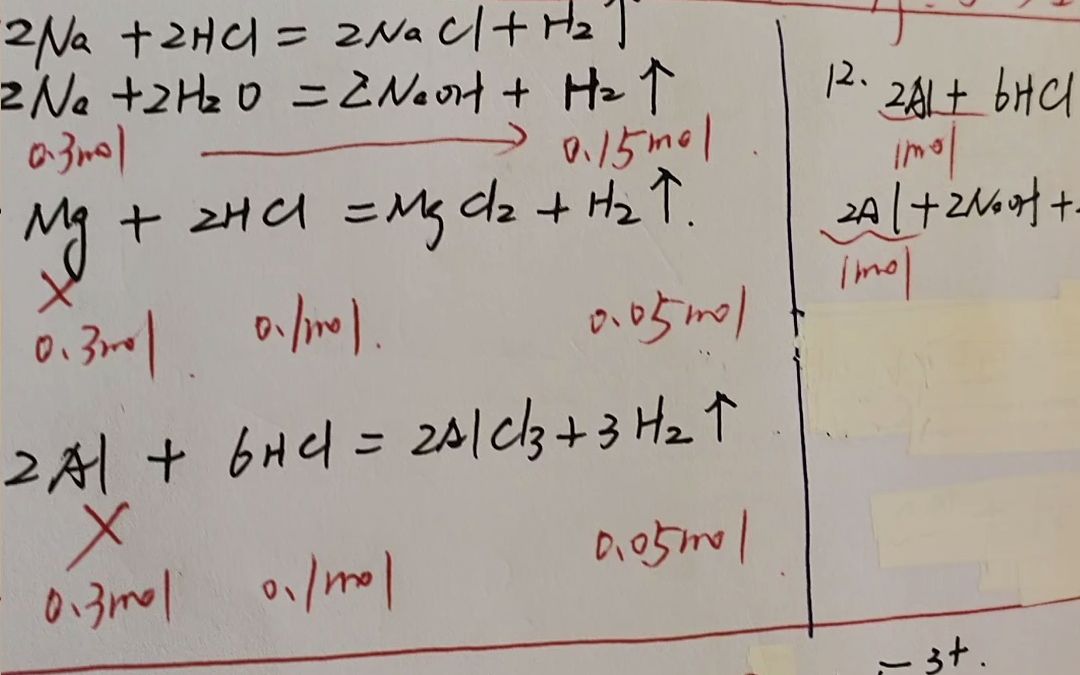 2Na + 2HCl = 2NaCl + H₂↑
2Na + 2H₂O = 2NaOH + H₂↑
0.3mol → 0.15mol
Mg + 2HCl = MgCl₂ + H₂↑.
×
0.3mol 0.1mol. 0.05mol
2Al + 6HCl = 2AlCl₃ + 3H₂↑
×
0.3mol 0.1mol 0.05mol
12. 2Al + 6HCl
1mol
2Al + 2NaOH +
1mol
3+.